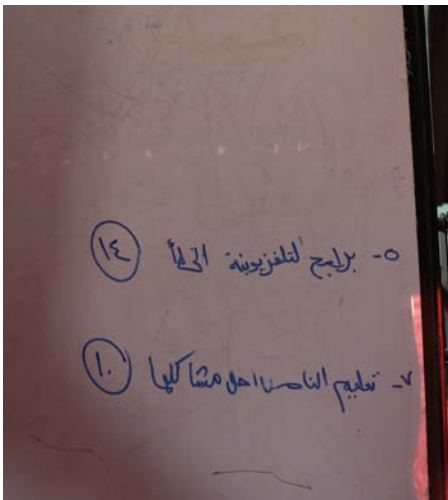 ٥- برامج التلفزيونية الى (١٤)
٧- تعليم الناس احل مشاكلها (١٠)